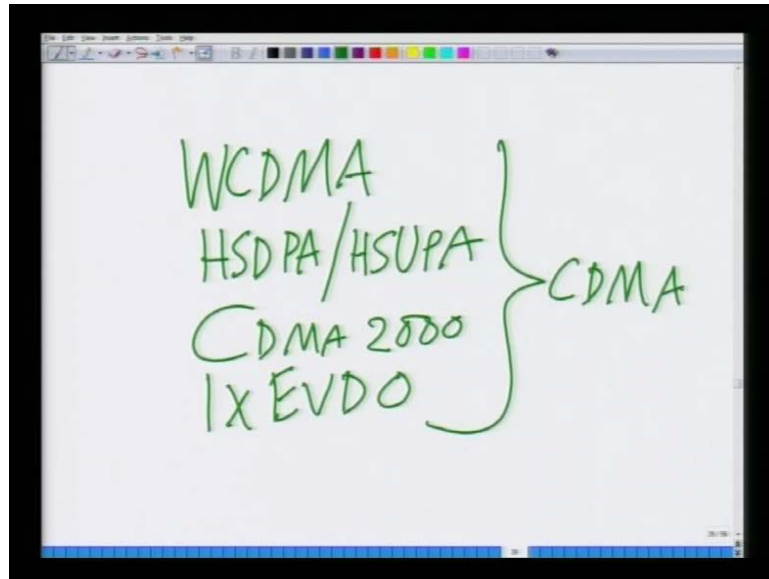 File Edit View Insert Actions Tools Help
WCDMA
HSDPA/HSUPA
CDMA 2000
1X EVDO
CDMA